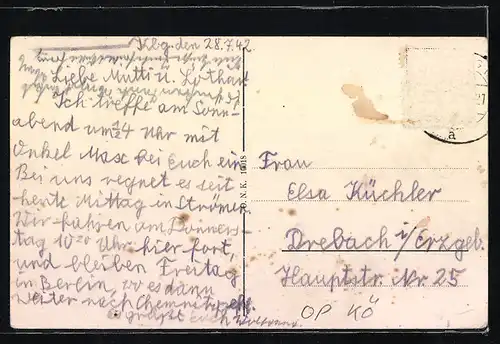 Kbg. den 28.7.42
Liebe Mutti u. Lothar
Ich treffe am Sonn-
abend um ½4 Uhr mit
Onkel Max bei Euch ein
Bei uns regnet es seit
heute Mittag in Strömen
Wir fahren am Donners-
tag 10²⁰ Uhr hier fort,
und bleiben Freitag
in Berlin, wo es dann
weiter nach Chemnitz geht.
grüßt Euch Wolfram.
D. N. K.
Frau
Elsa Küchler
Drebach i/Erzgeb.
Hauptstr. Nr 25
OP KÖ
a